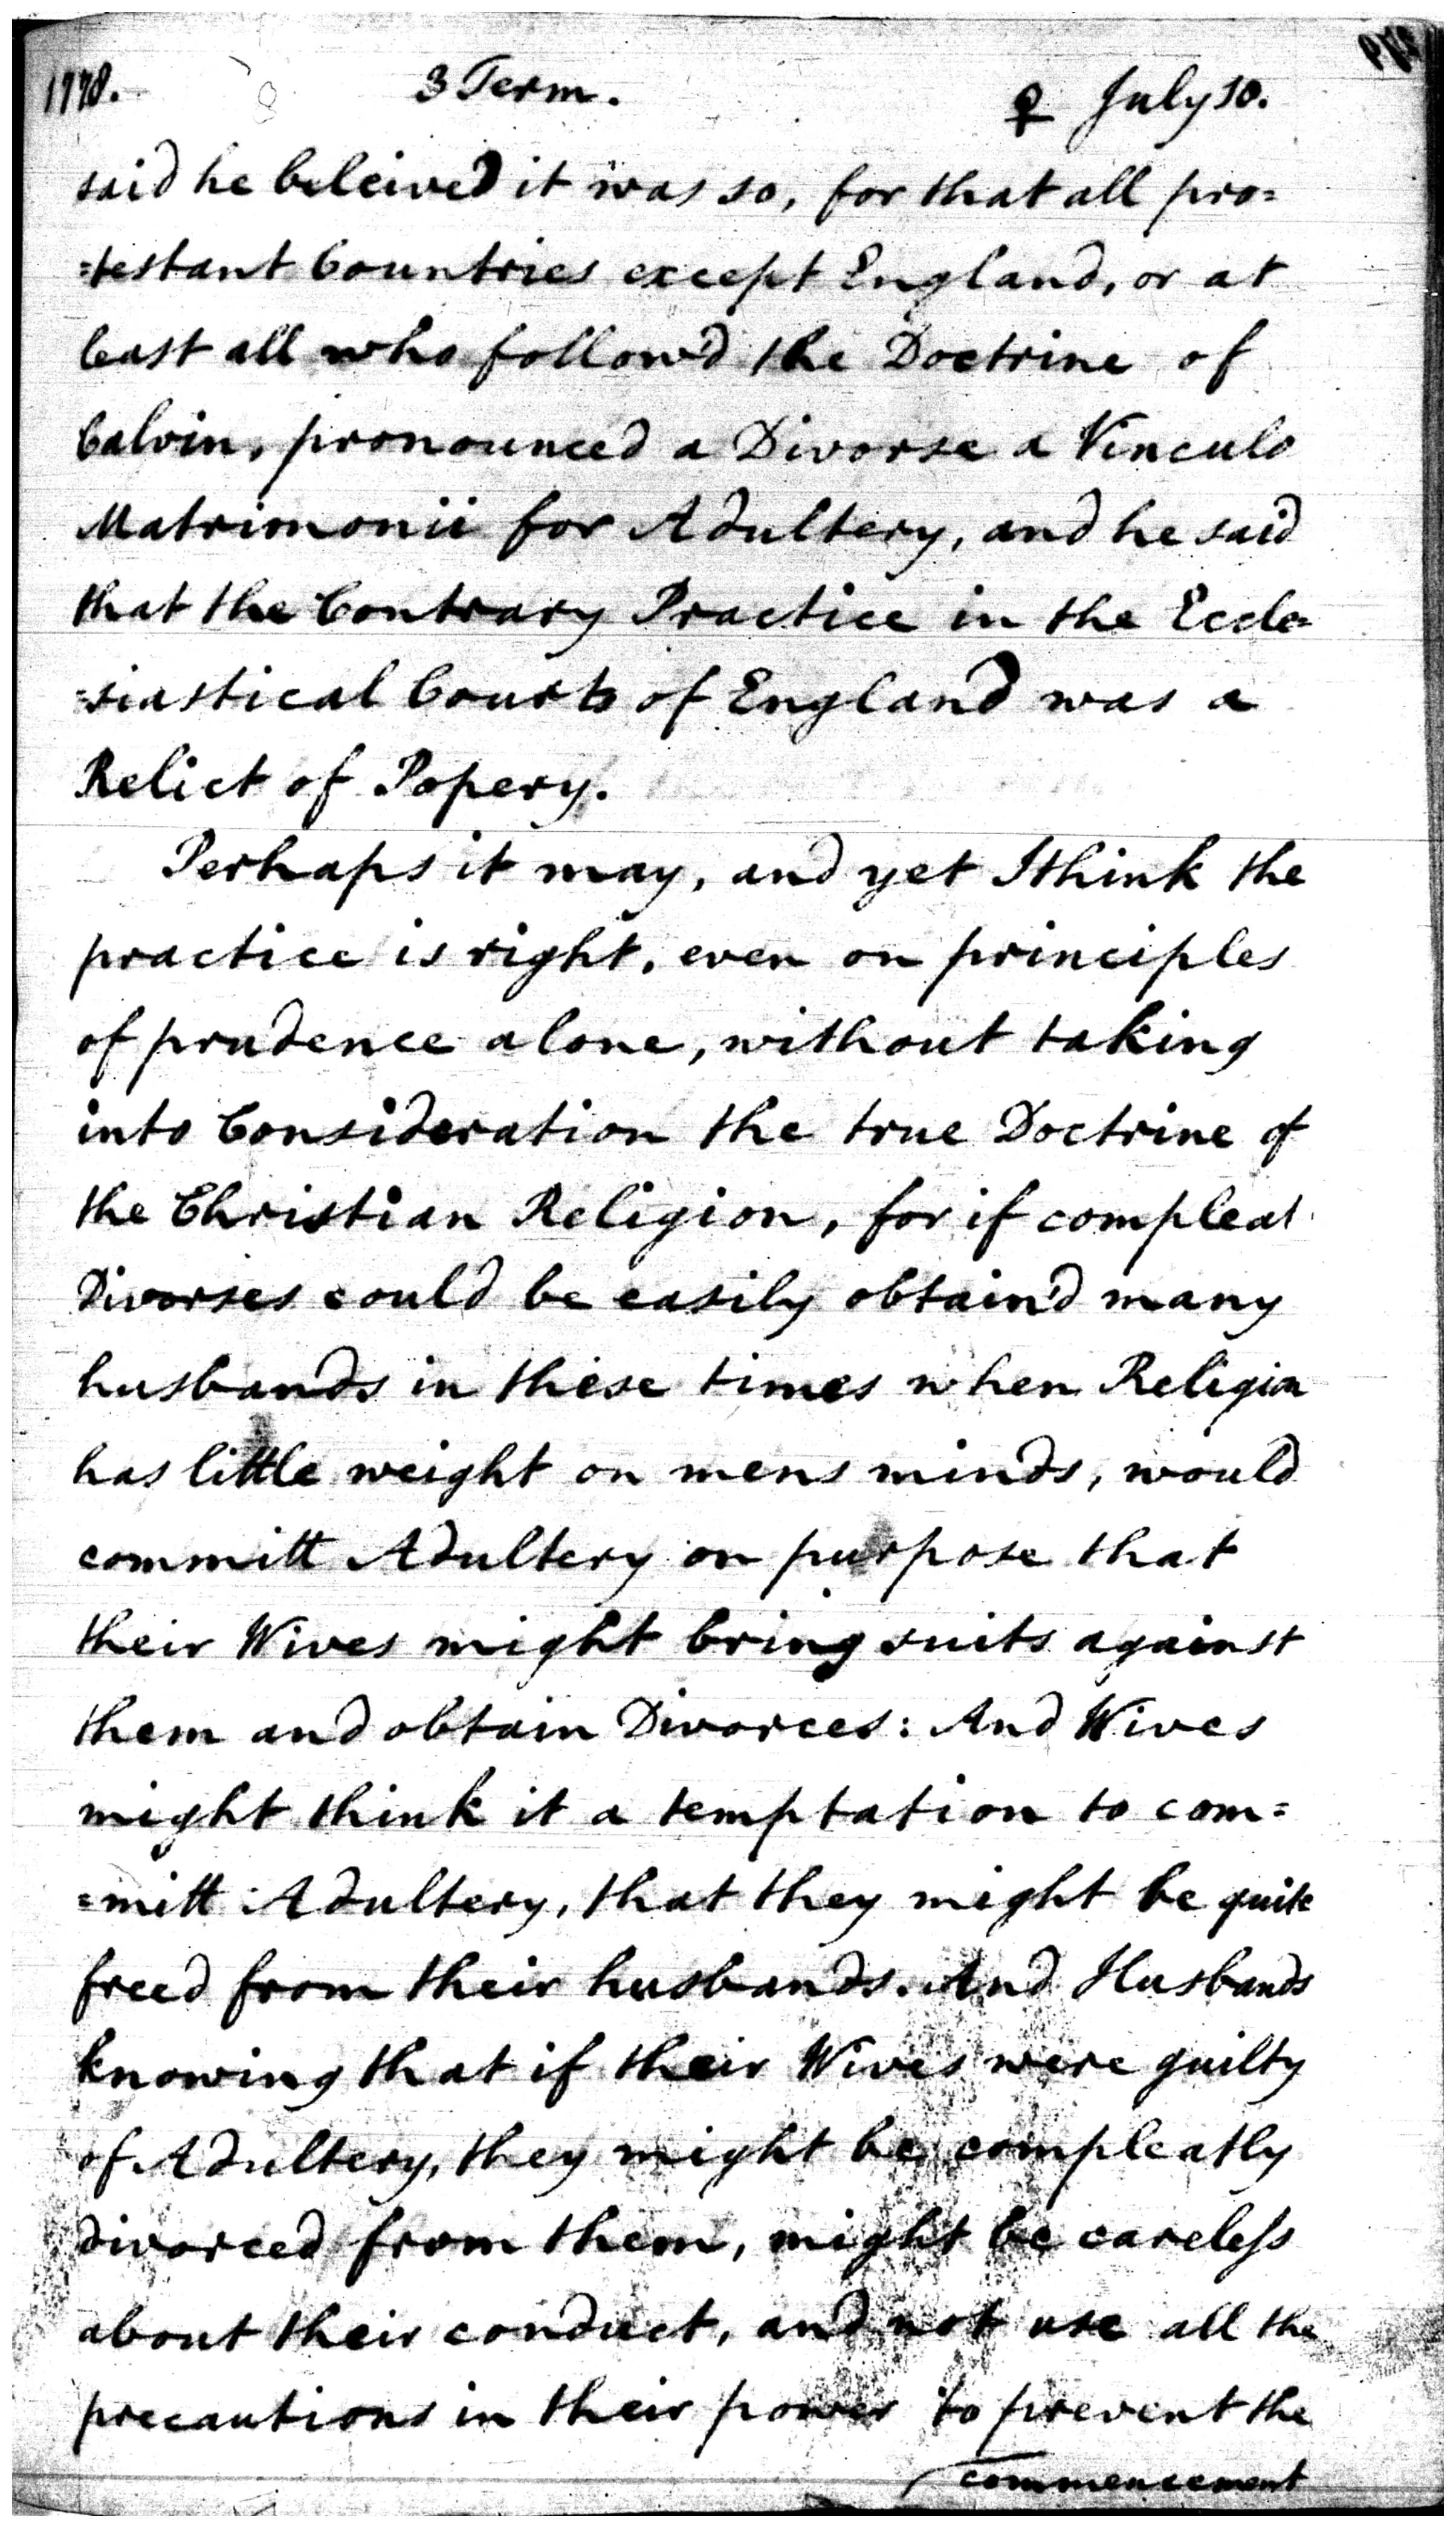 1778. 3 Term. ♀ July 10.
said he beleived it was so, for that all pro=
=testant Countries except England, or at
least all who follow'd the Doctrine of
Calvin, pronounced a Divorse a Vinculo
Matrimonii for Adultery, and he said
that the Contrary Practice in the Eccle=
=siastical Courts of England was a
Relict of Popery.
Perhaps it may, and yet I think the
practice is right, even on principles
of prudence alone, without taking
into Consideration the true Doctrine of
the Christian Religion, for if compleat
Divorses could be easily obtain'd many
husbands in these times when Religion
has little weight on mens minds, would
committ Adultery on purpose that
their Wives might bring suits against
them and obtain Divorces: And Wives
might think it a temptation to com=
=mitt Adultery, that they might be quite
freed from their husbands. And Husbands
knowing that if their Wives were guilty
of Adultery, they might be compleatly
divorced from them, might be careless
about their conduct, and not use all the
precautions in their power to prevent the
commencement